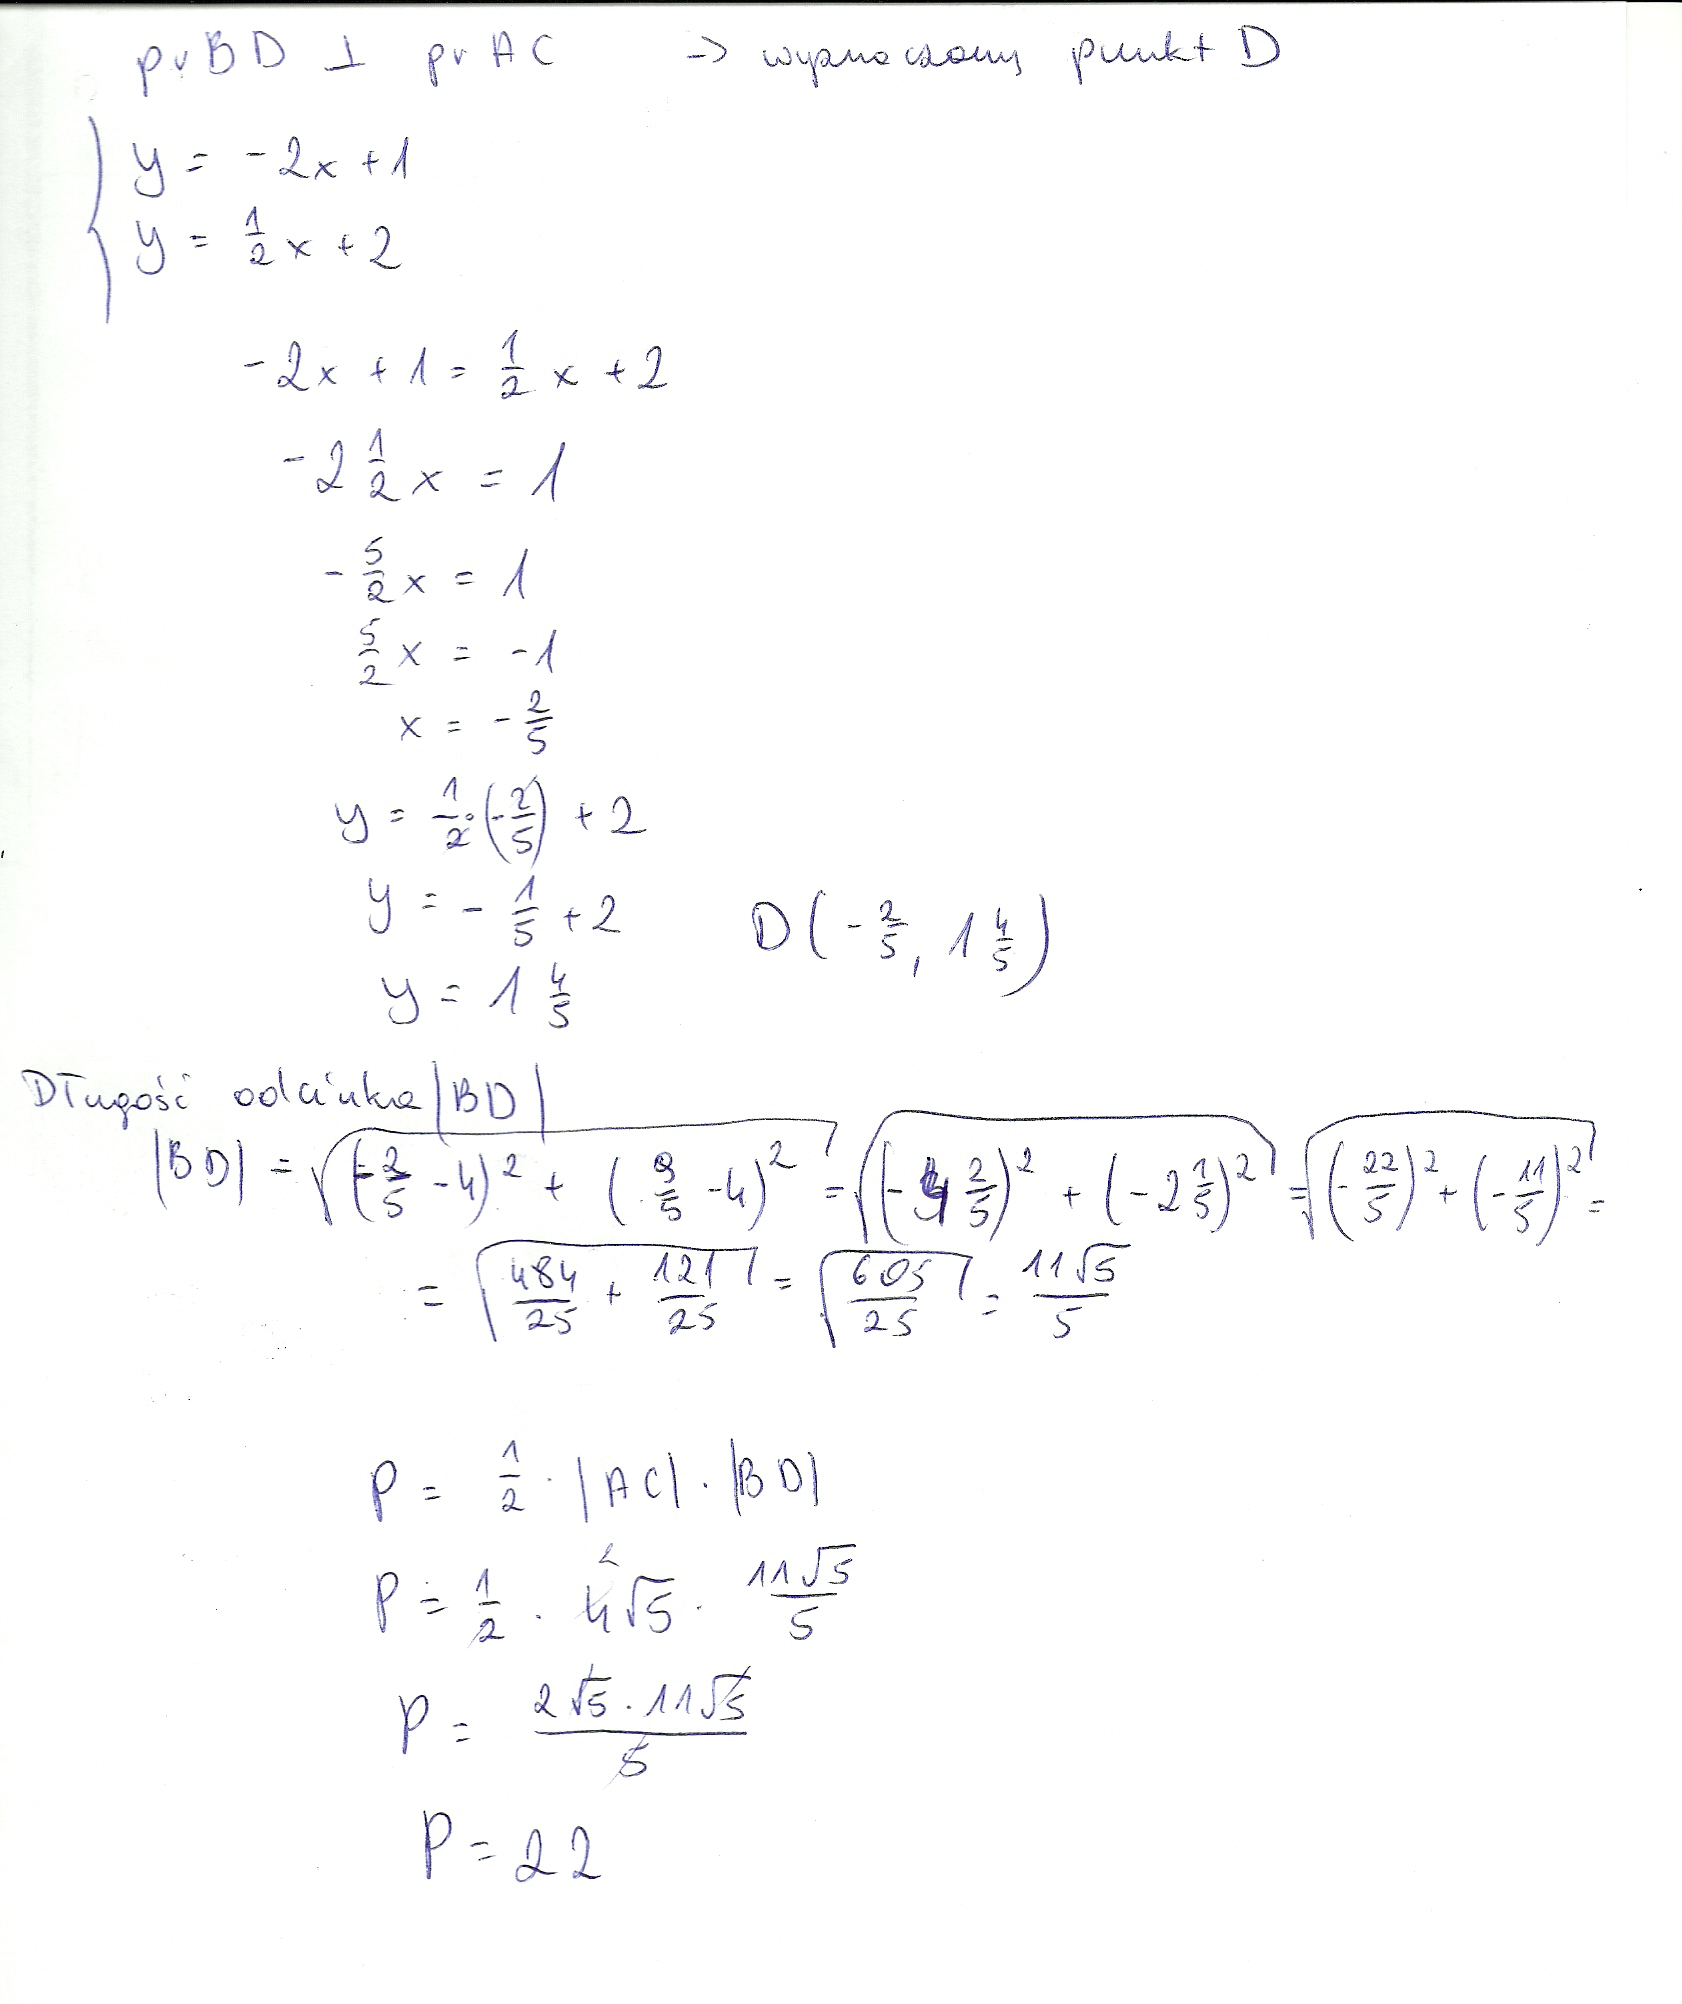 pr BD ⊥ pr AC -> wyznaczamy punkt D
{ y = -2x + 1
y = 1/2 x + 2
-2x + 1 = 1/2 x + 2
-2 1/2 x = 1
-5/2 x = 1
5/2 x = -1
x = -2/5
y = 1/2 · (-2/5) + 2
y = -1/5 + 2
D(-2/5, 1 4/5)
y = 1 4/5
Długość odcinka |BD|
|BD| = √((-2/5 - 4)² + (9/5 - 4)²) = √((-4 2/5)² + (-2 1/5)²) = √((-22/5)² + (-11/5)²) =
= √(484/25 + 121/25) = √(605/25) = 11√5/5
P = 1/2 · |AC| · |BD|
P = 1/2 · 4√5 · 11√5/5
P = 2√5 · 11√5/5
P = 22